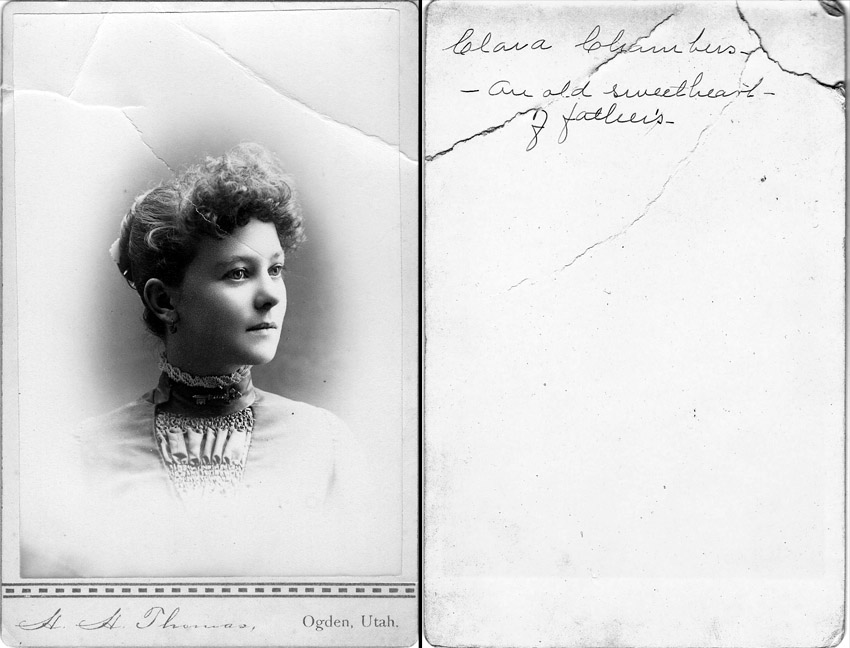 H. H. Thomas,
Ogden, Utah.
Clara Chambers-
- An old sweetheart -
of father's -